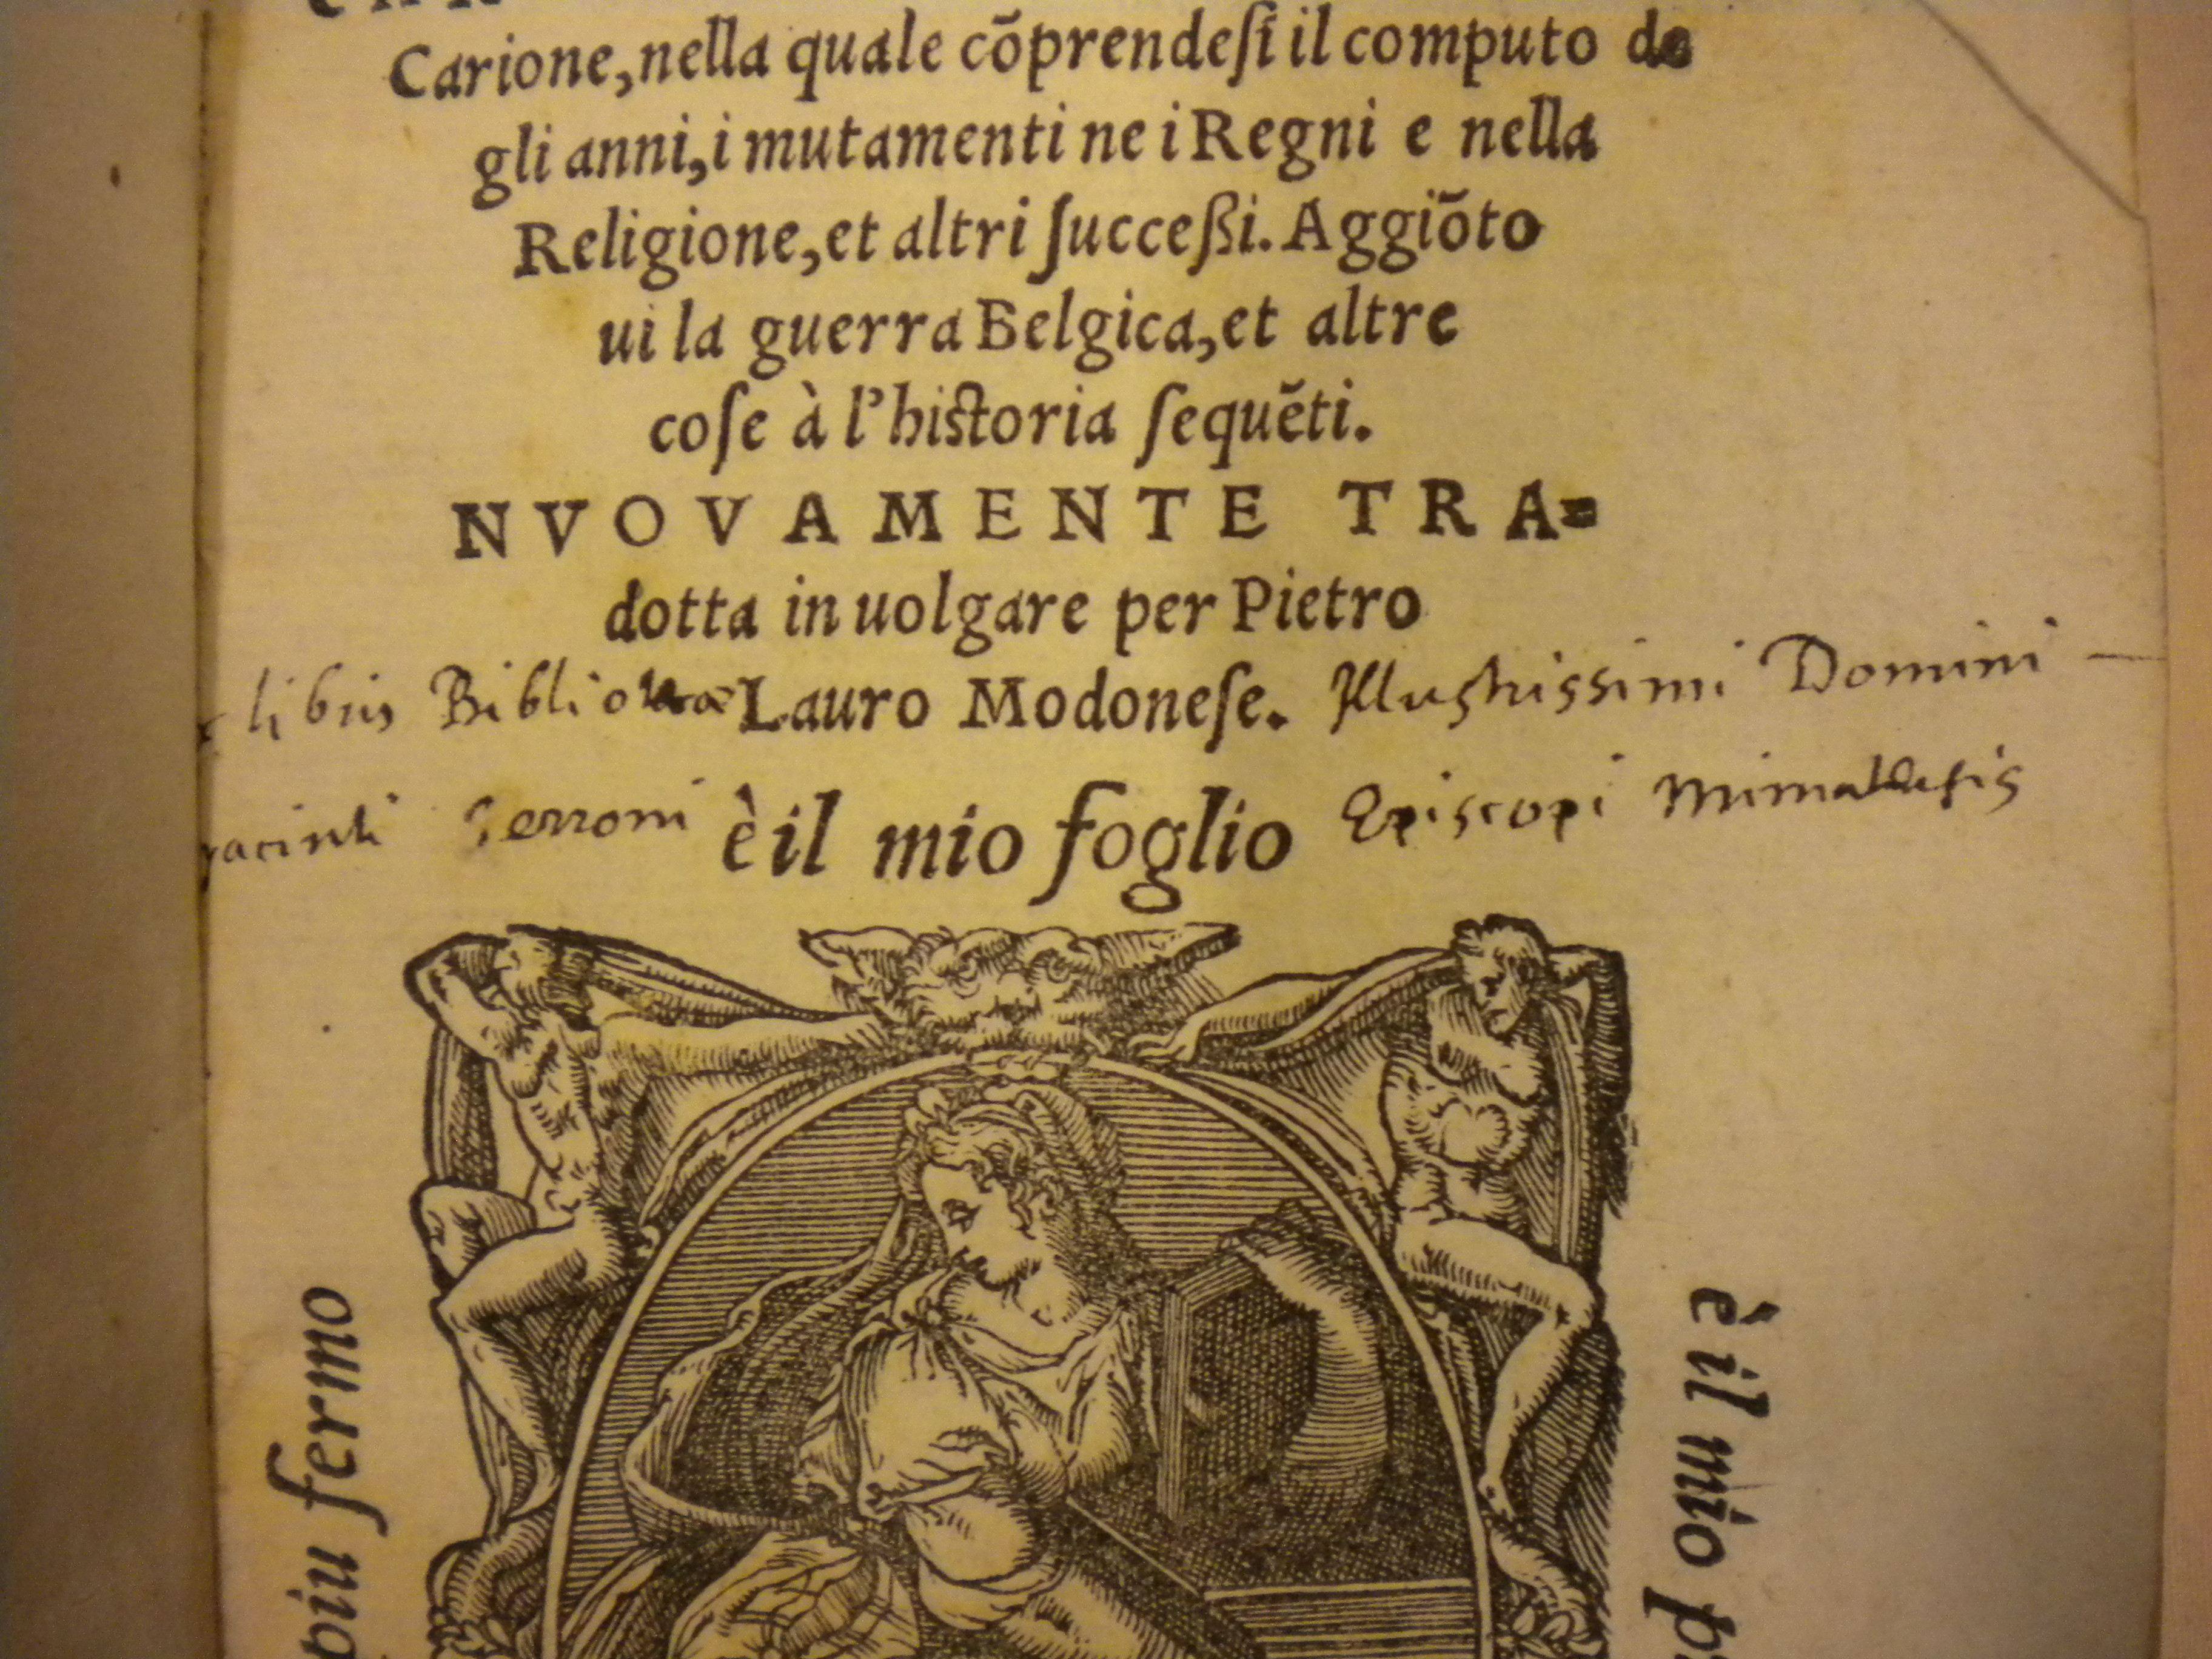 Carione, nella quale cõprendesi il computo de
gli anni, i mutamenti ne i Regni e nella
Religione, et altri succeßi. Aggiõto
ui la guerra Belgica, et altre
cose à l'historia sequẽti.
NVOVAMENTE TRA=
dotta in uolgare per Pietro
libris Lauro Modonese. Illustrissimi Domini —
Serroni è il mio foglio Episcopi
piu fermo
è il mio